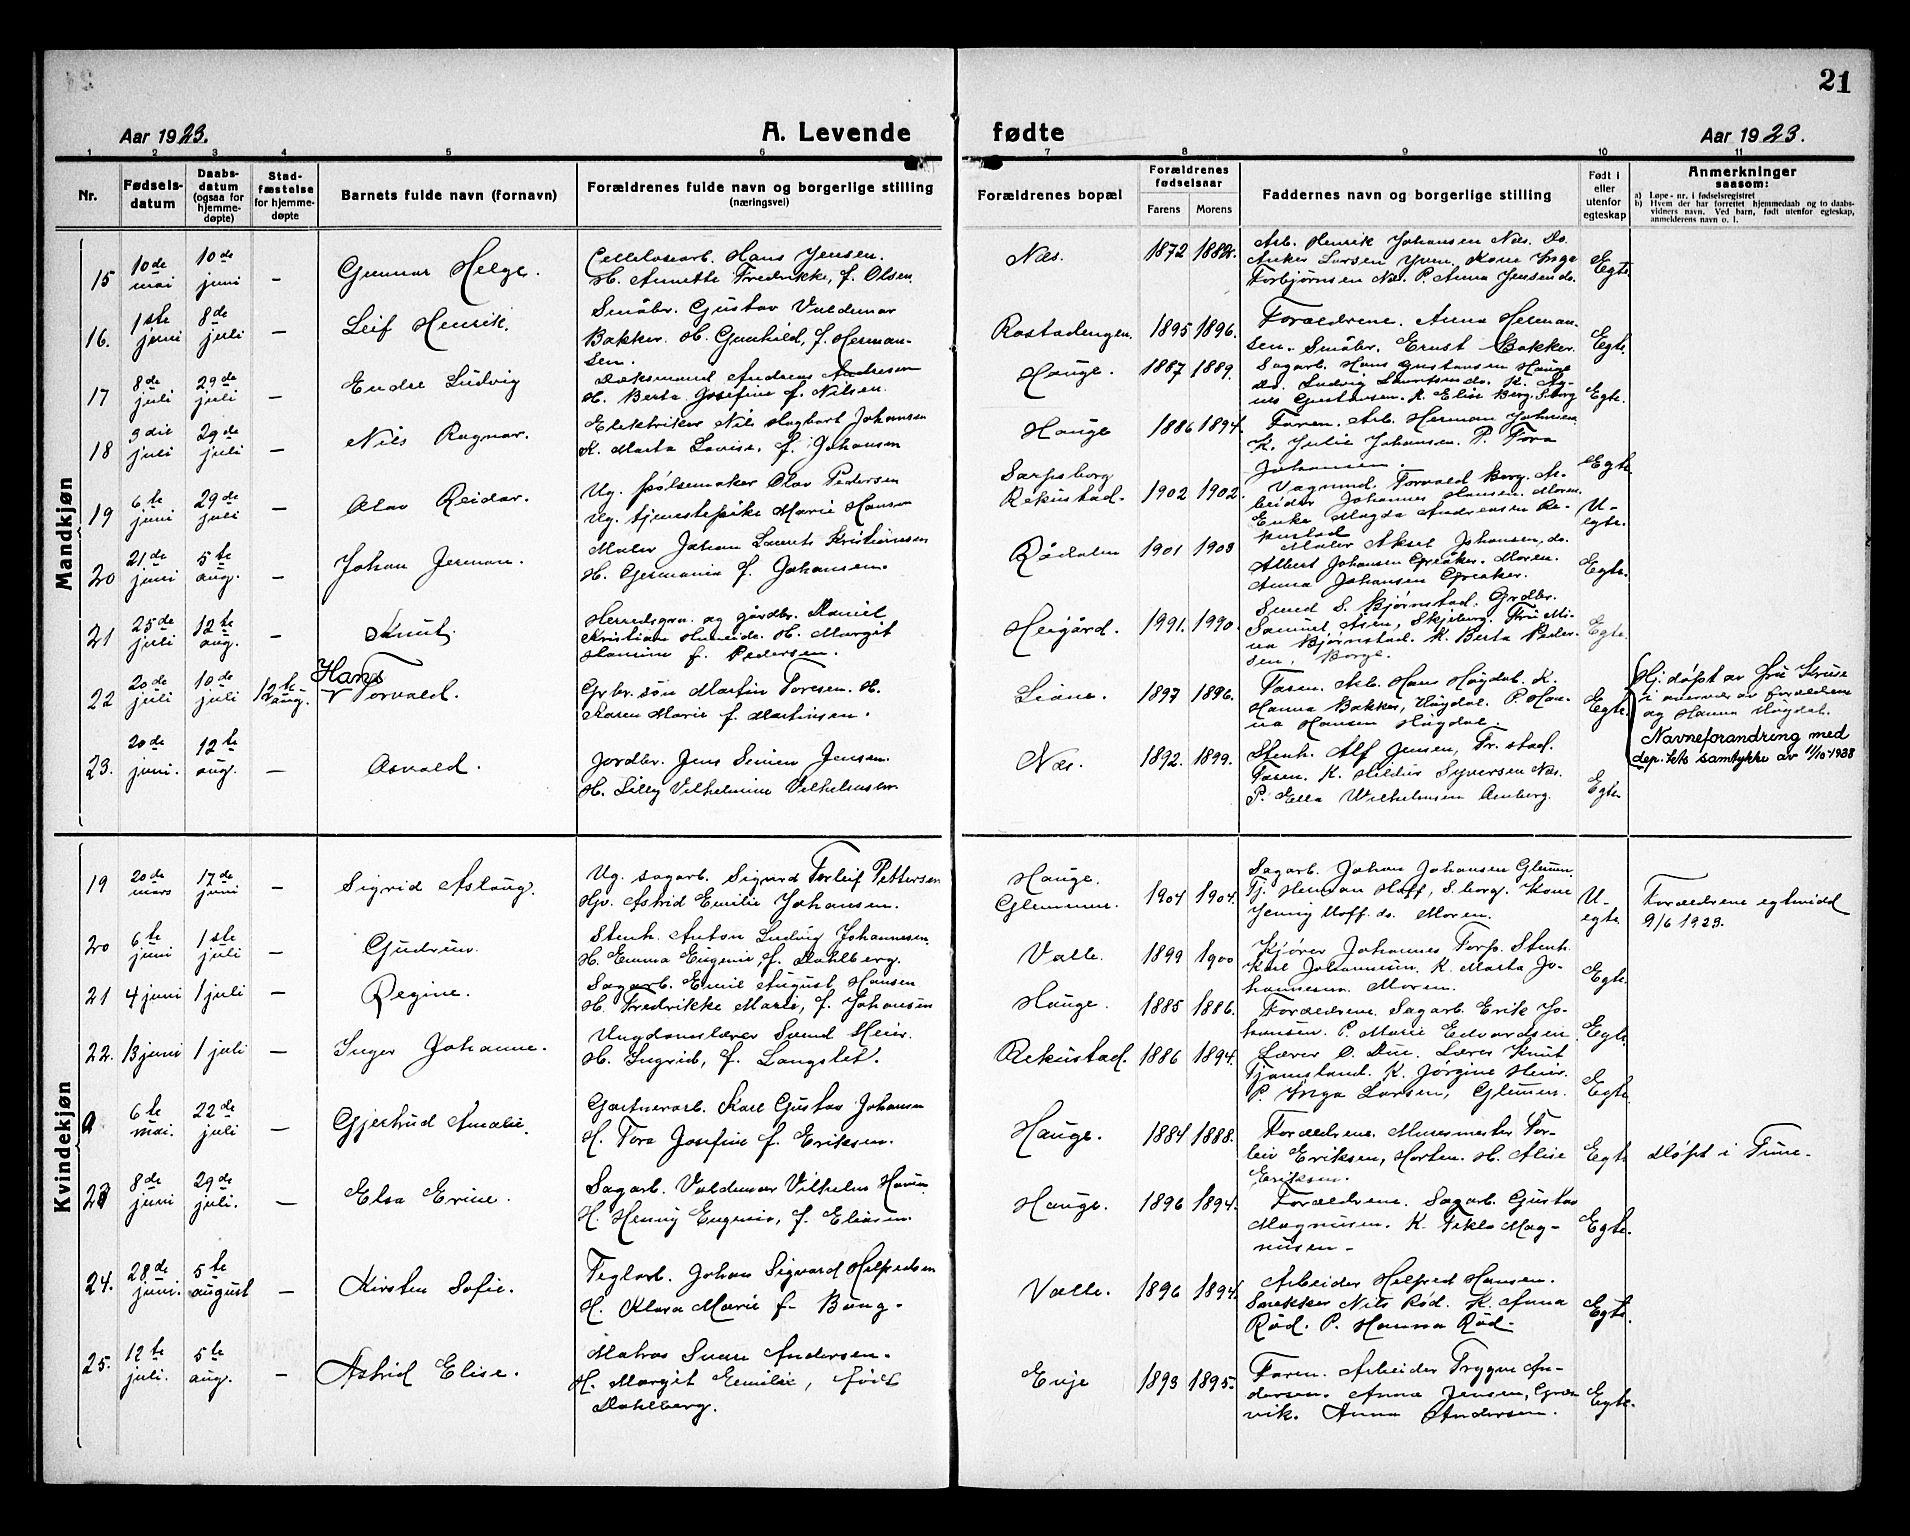 21
Aar 1923. A. Levende
fødte Aar 1923.
1 2 3 4 5 6
7 8 9 10 11
Nr.
Fødsels-
datum
Daabs-
datum
(ogsaa for
hjemme-
døpte)
Stad-
fæstelse
for hjemme-
døpte
Barnets fulde navn (fornavn)
Forældrenes fulde navn og borgerlige stilling
(næringsvei)
Forældrenes bopæl
Forældrenes
fødselsaar
Farens Morens
Faddernes navn og borgerlige stilling
Født i
eller
utenfor
egteskap
Anmerkninger
saasom:
a) Løpe-nr. i fødselsregistret
b) Hvem der har forrettet hjemmedaab og to daabs-
vidners navn. Ved barn, født utenfor egteskap,
anmelderens navn o. l.
Mandkjøn
15 10de mai 10de juni – Gunnar Helge.
Celluloscarb. Hans Jensen.
H. Annette Fredrikke, f. Olsen.
Næs. 1872 1882.
Arb. Henrik Johansen Næs. Do.
Anker Larsen Yven. Kone Ynga
Torbjørnsen Næs. P. Anna Jensen do.
Egte
16. 1ste juni 8de juli – Leif Henrik.
Småbr. Gustav Valdemar
Bakker. H. Gunhild, f. Herman-
sen.
Rostadengen. 1895 1896.
Forældrene. Anna Herman-
sen. Småbr. Ernst Bakker.
Egte.
17 8de juli 29de juli – Endre Ludvig
Dæksmand Andreas Andresen
H. Berta Josefine f. Nilsen.
Hauge. 1887 1889.
Sagarb. Hans Gustavsen Hauge
Do. Ludvig Lauritsen do. K. Ag-
nes Gustavsen. K. Elise Berg. S.borg
Egte.
18 3die juli 29de juli – Nils Ragnar.
Elektriker Nils Hagbart Johansen
K. Marta Lovise, f. Johansen
Hauge 1886 1894.
Faren. Arb. Herman Johansen.
K. Julie Johansen. P. Tora
Johansen.
Egte
19 6te juni 29de juli – Olav Reidar.
Ug. pølsemaker Olav Pedersen
Ug. tjenestepike Marie Hansen
Sarpsborg
Rekustad. 1902 1902.
Vognmd. Torvald Borg. Ar-
beider Johannes Hansen. Moren.
Enke Magda Andreassen Re-
kustad
U-
egte.
20 21de juni 5te aug. – Johan Jerman.
Maler Johan Laurits Kristiansen
H. Germania f. Johansen.
Rådalen 1901 1903
Maler Aksel Johansen, do.
Albert Johansen Greåker. Moren.
Anna Johansen Greåker.
Egte.
21 25de juli 12te aug. – Knut.
Herredsgrn. og gårdbr. Daniel
Kristian Hmeide. H. Margit
Hansine f. Pedersen.
Heigård. 1991. 1990.
Svend S. Bjørnstad. Grdbr.
Samuel Asen, Skjeberg. Fru Mi-
na Bjørnstad. K. Berta Peder-
sen, Borge.
Egte.
22 20de juli 10de juli 12te aug. Hans
Torvald.
Grbr. søn Martin Toresen. H.
Karen Marie f. Martinsen.
Liane. 1897 1896.
Faren. Arb. Hans Høgdal. K.
Hanna Bakker, Høgdal. P. Han-
na Hansen Høgdal.
Egte.
Hj. døpt av Fru Kruse
i nærvær av forældrene
og Hanna Høgdal.
Navneforandring med
dep.tets samtykke av 11/10-1938
23. 20de juni. 12te aug. – Asvald.
Jordbr. Jens Simen Jensen.
H. Lilly Vilhelmine Vilhelmsen
Næs. 1892. 1899.
Stenh. Alf Jensen, Fr.stad.
Faren. K. Hildur Syversen Næs.
P. Ella Wilhelmsen Amberg.
Egte.
Kvindekjøn
19 20de mars 17de juni – Sigrid Aslaug.
Ug. sagarb. Sigurd Torleif Pettersen
Hjv. Astrid Emilie Johansen.
Hauge.
Glemmen. 1904 1904.
Sagarb. Johan Johansen Glemm.
Tj. Herman Hoff, S.borg. Kone
Jenny Hoff do. Moren.
U-
egte.
Forældrene egtvidd
9/6 1923.
20 6te juni 1ste juli – Gudrun.
Stenh. Anton Ludvig Johannesen.
H. Emma Eugenie, f. Dahlberg.
Valle. 1899 1900
Kjører Johannes Torp. Stenh.
Karl Johannesen. K. Marta Jo-
hannesen. Moren.
Egte.
21 4 juni 1 juli – Regine.
Sagarb. Emil August Hansen
H. Fredrikke Marie, f. Johansen
Hauge. 1885 1886.
Forældrene. Sagarb. Erik Jo-
hansen. P. Marie Edvardsen.
Egte.
22. 13 juni 1 juli – Inger Johanne.
Ungdomslærer Svend Heier.
H. Ingrid, f. Langslet.
Rekustad. 1886 1894.
Lærer O. Due. Lærer Knut
Tjomsland. K. Jørgine Heier.
P. Ynga Larsen, Glemmen.
Egte.
a 6te mai. 22de juli – Gjertrud Amalie.
Gartnerarb. Karl Gustav Johansen
H. Tora Josefine f. Eriksen.
Hauge. 1884 1888.
Forældrene. Murermester Tor-
leiv Eriksen, Horten. H. Alise
Eriksen.
Egte
Døpt i Tune.
23 8de juni 29de juli. – Elsa Erine.
Sagarb. Valdemar Vilhelm Hansen
H. Henny Eugenie, f. Eliasen.
Hauge. 1896 1894.
Forældrene. Sagarb. Gustav
Magnusen. K. Tekla Mag-
nusen.
Egte.
24. 28de juni. 5te august – Kirsten Sofie.
Teglarb. Johan Sigvard Helfredsen
H. Klara Marie f. Bung.
Valle. 1896 1894.
Arbeider Helfred Hansen.
Snekker Nils Rød. K. Anna
Rød. P. Hanna Rød.
Egte.
25. 12te juli. 5te aug. – Astrid Elise.
Matros Svare Andersen.
H. Margit Emilie, født
Dahlberg.
Evje 1893 1895.
Faren. Arbeider Trygve An-
dersen. Anna Jensen, Græs-
vik. Anna Andersen.
Egte.